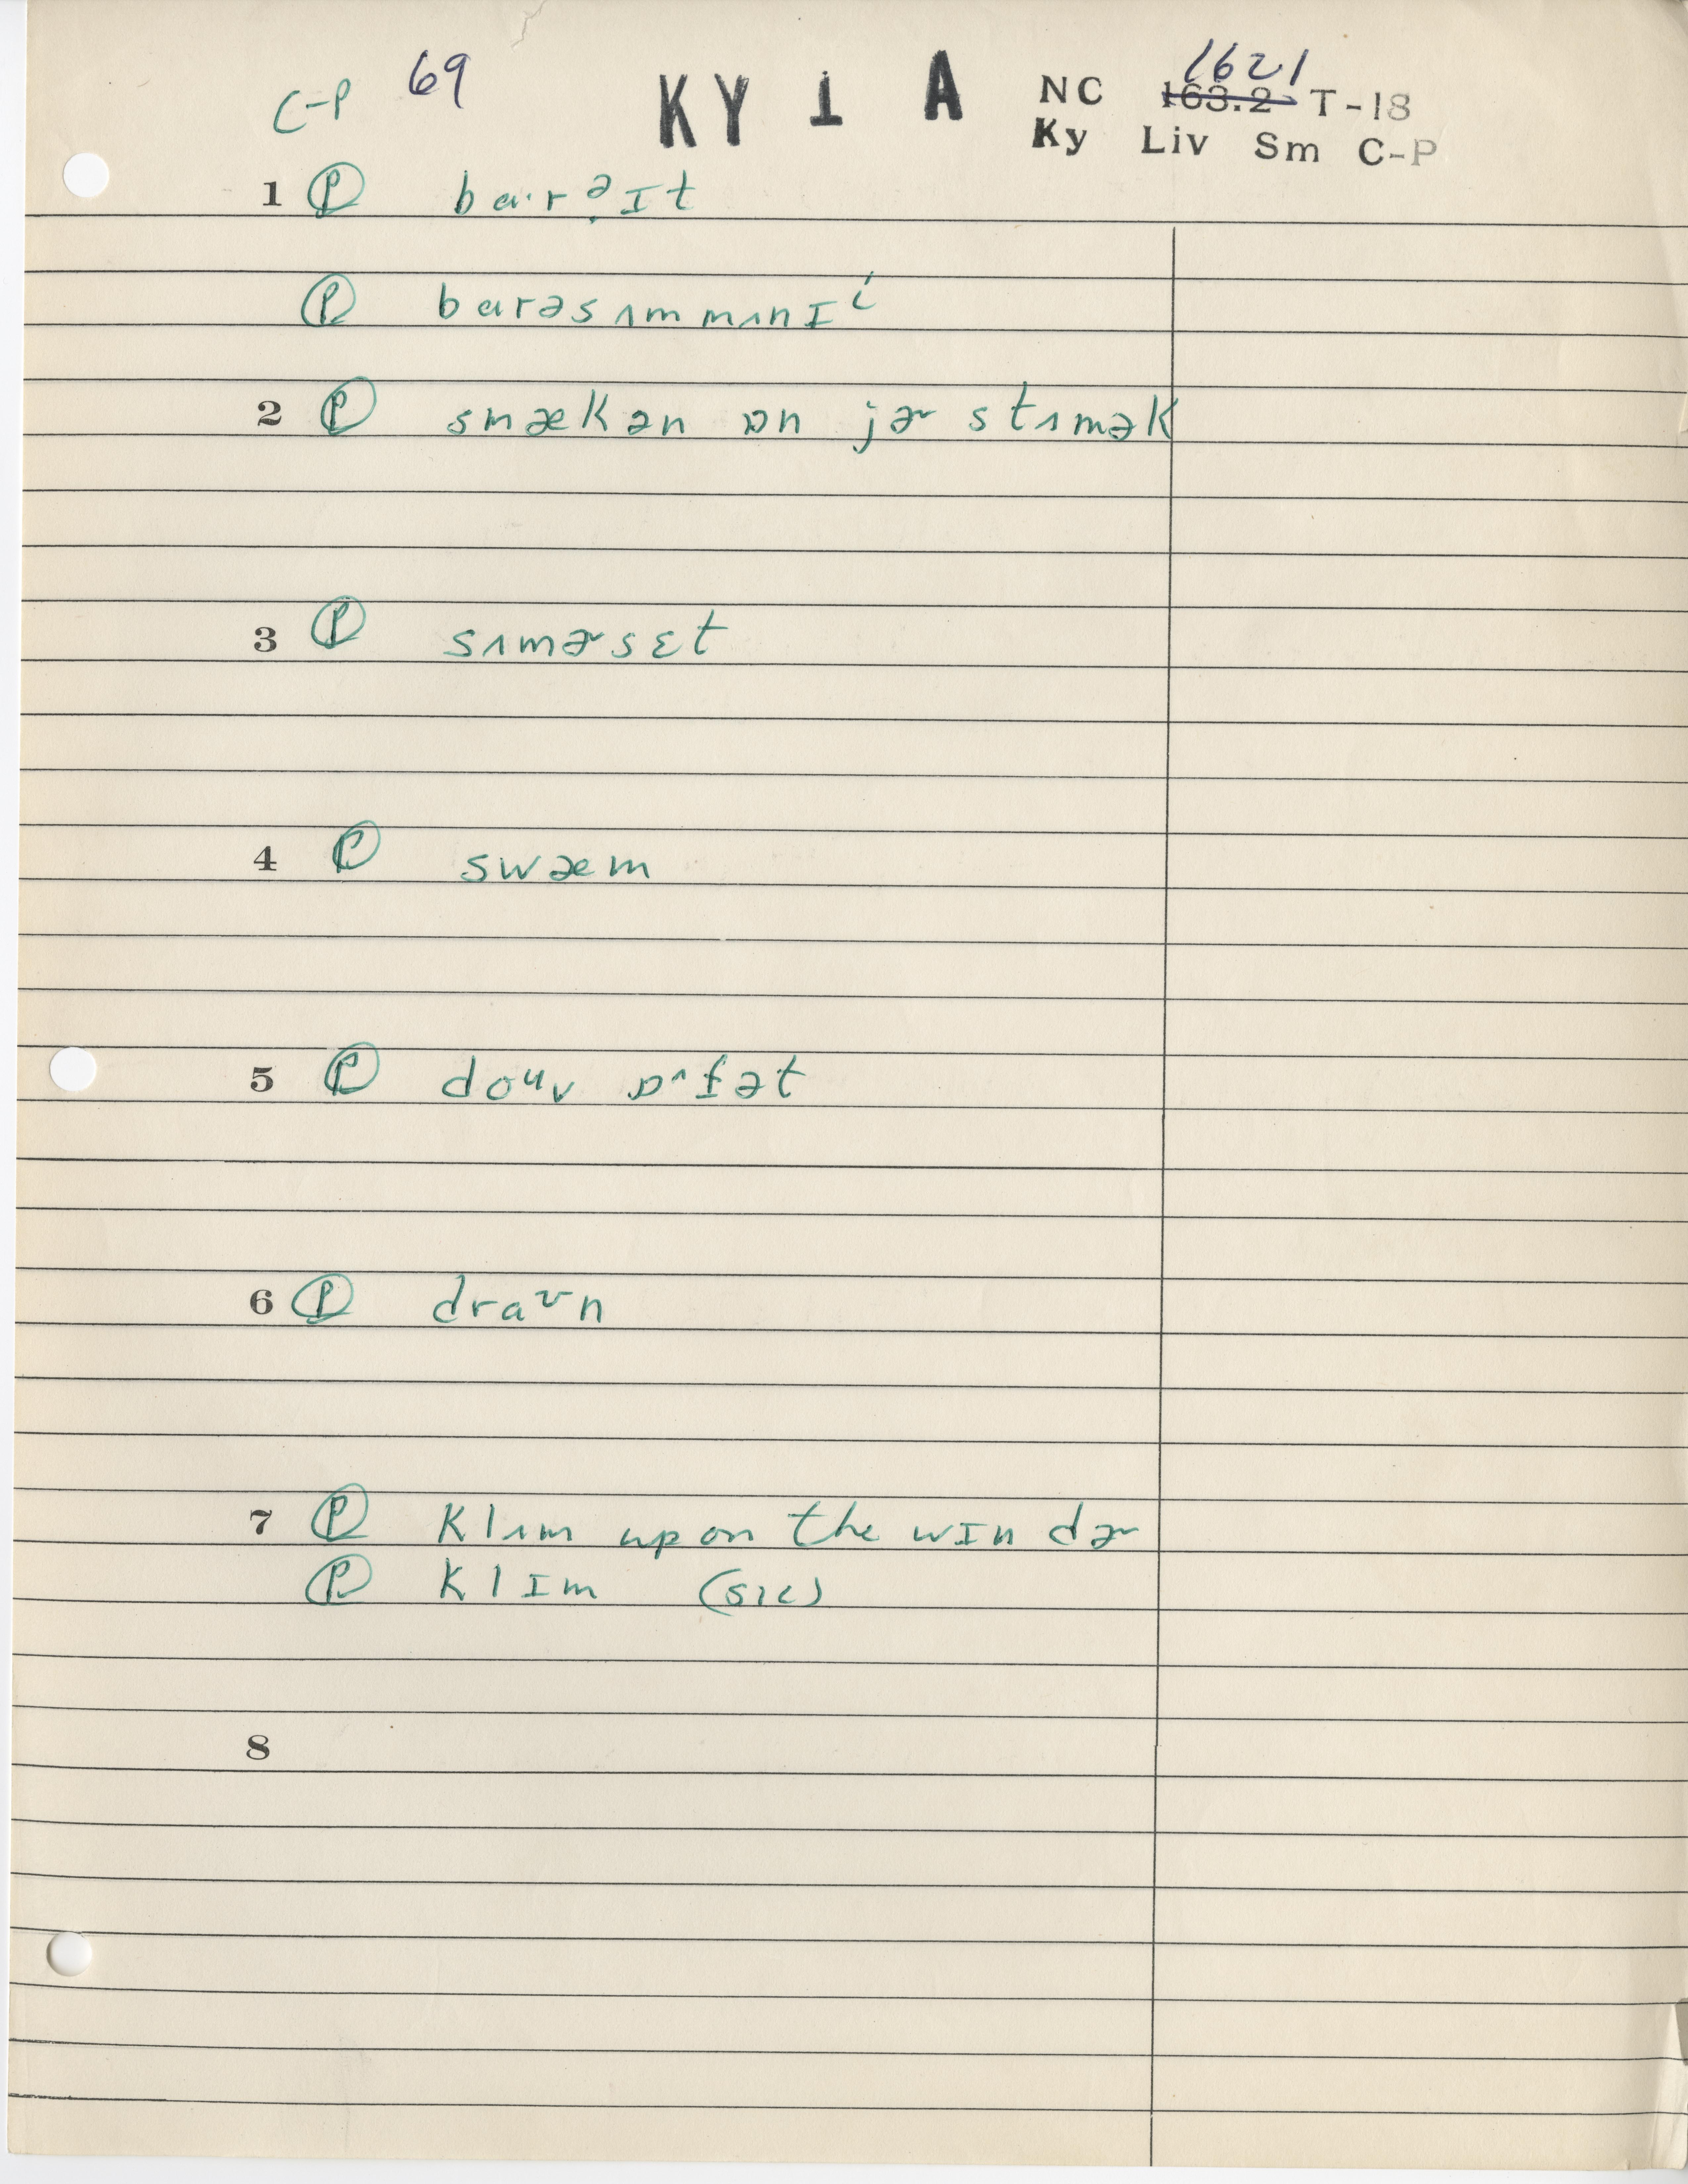 C-P 69 KY 1 A NC 1621 163.2 T-18
Ky Liv Sm C-P
1 Ⓟ bɑ·rᵊ̣ɪt
Ⓟ bɑrəsʌmmʌnɪⁱ
2 Ⓟ smækən ɒn jɚ stʌmək
3 Ⓟ sʌmɚsɛt
4 Ⓟ swæm
5 Ⓟ doᵘv ɒ^f ət
6 Ⓟ draᶷn
7 Ⓟ klʌm up on the wɪndɚ
Ⓟ klɪm (sic)
8